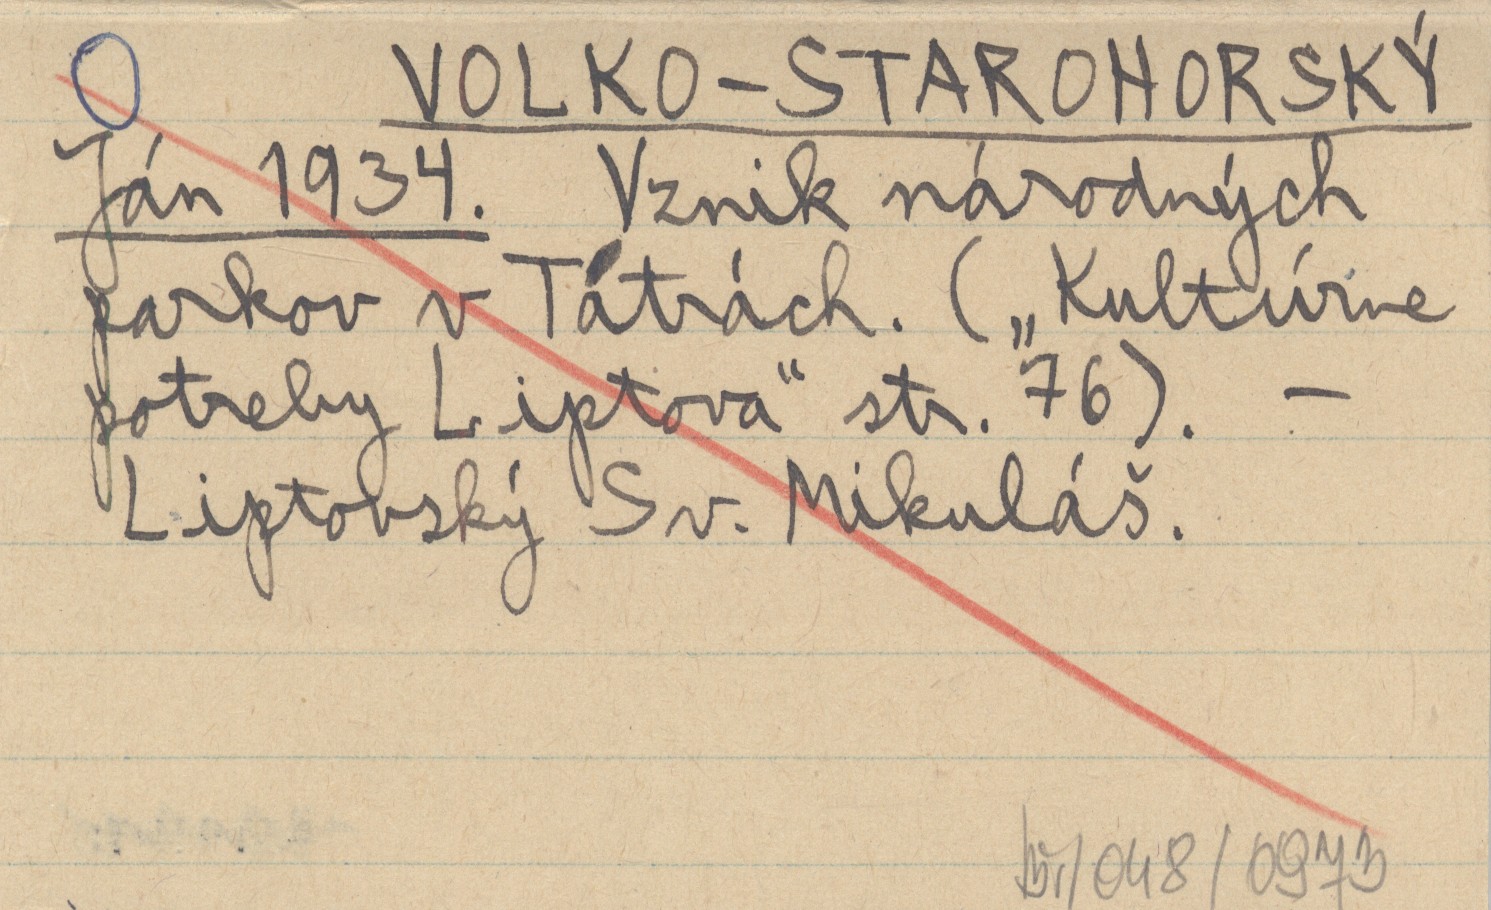 VOLKO-STAROHORSKÝ
Ján 1934. Vznik národných
parkov v Tátrách. („Kultúrne
potreby Liptova“ str. 76). –
Liptovský Sv. Mikuláš.
/048/0973